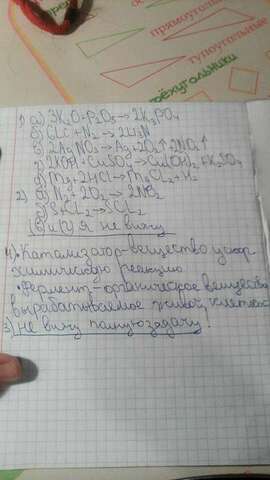 прямоугольные
тупоугольные
треугольники
1) а) 3K2O+P2O5→2K3PO4
б) 6Li+N2→2Li3N
в) 2AgNO3→Ag2+O2↑+2NO2↑
г) 2KOH+CuSO4→Cu(OH)2+K2SO4
д) Mg+2HCl→MgCl2+H2
2) а) N2+2O2→2NO2
S+Cl2→SCl2
(б) и (г) Я не вижу
4) • Катализатор-вещество ускор
химическую реакцию
• Фермент-органическое вещество
вырабатываемое живой клеткой
3) не вижу полную задачу!